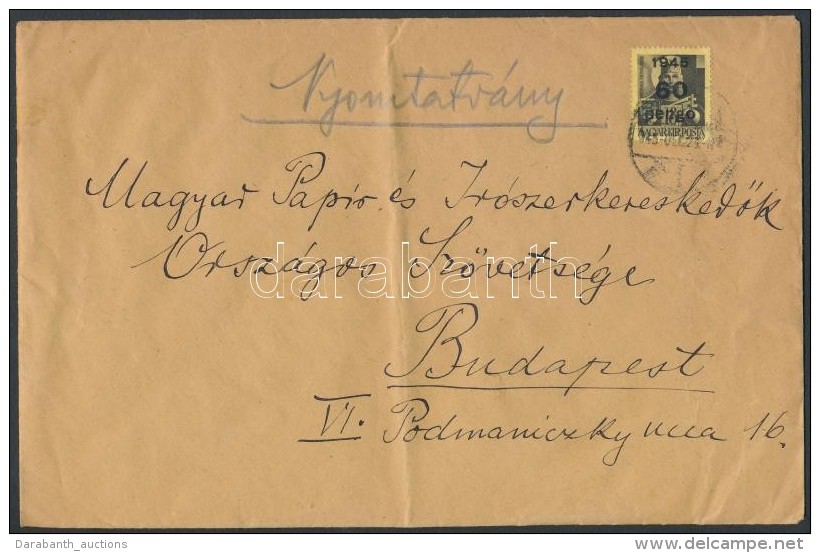 Nyomtatvány
1945
60
pengő
MAGYAR KIR. POSTA
Magyar Papir és Irószerkereskedők
Országos Szövetsége
darabanth
Budapest
VI. Podmaniczky ucca 16.
Darabanth_auctions
www.delcampe.net